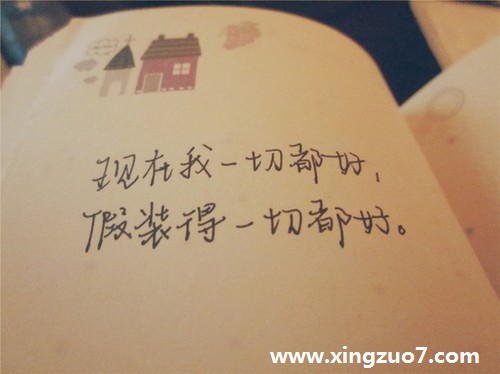 现在我一切都好，
假装得一切都好。
www.xingzuo7.com